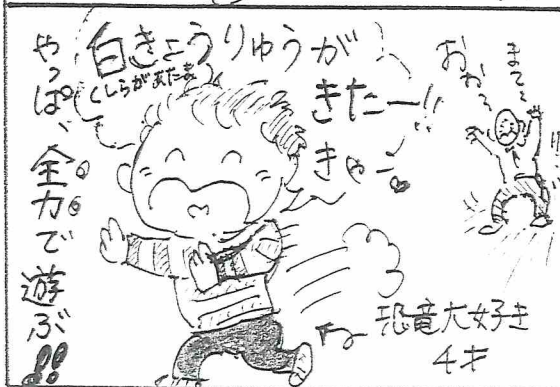 まて〜
おお〜
白きょうりゅうが
(しらがあたま)
きたー!!
きゃー
やっぱ、全力で遊ぶ!!
恐竜大好き
4才